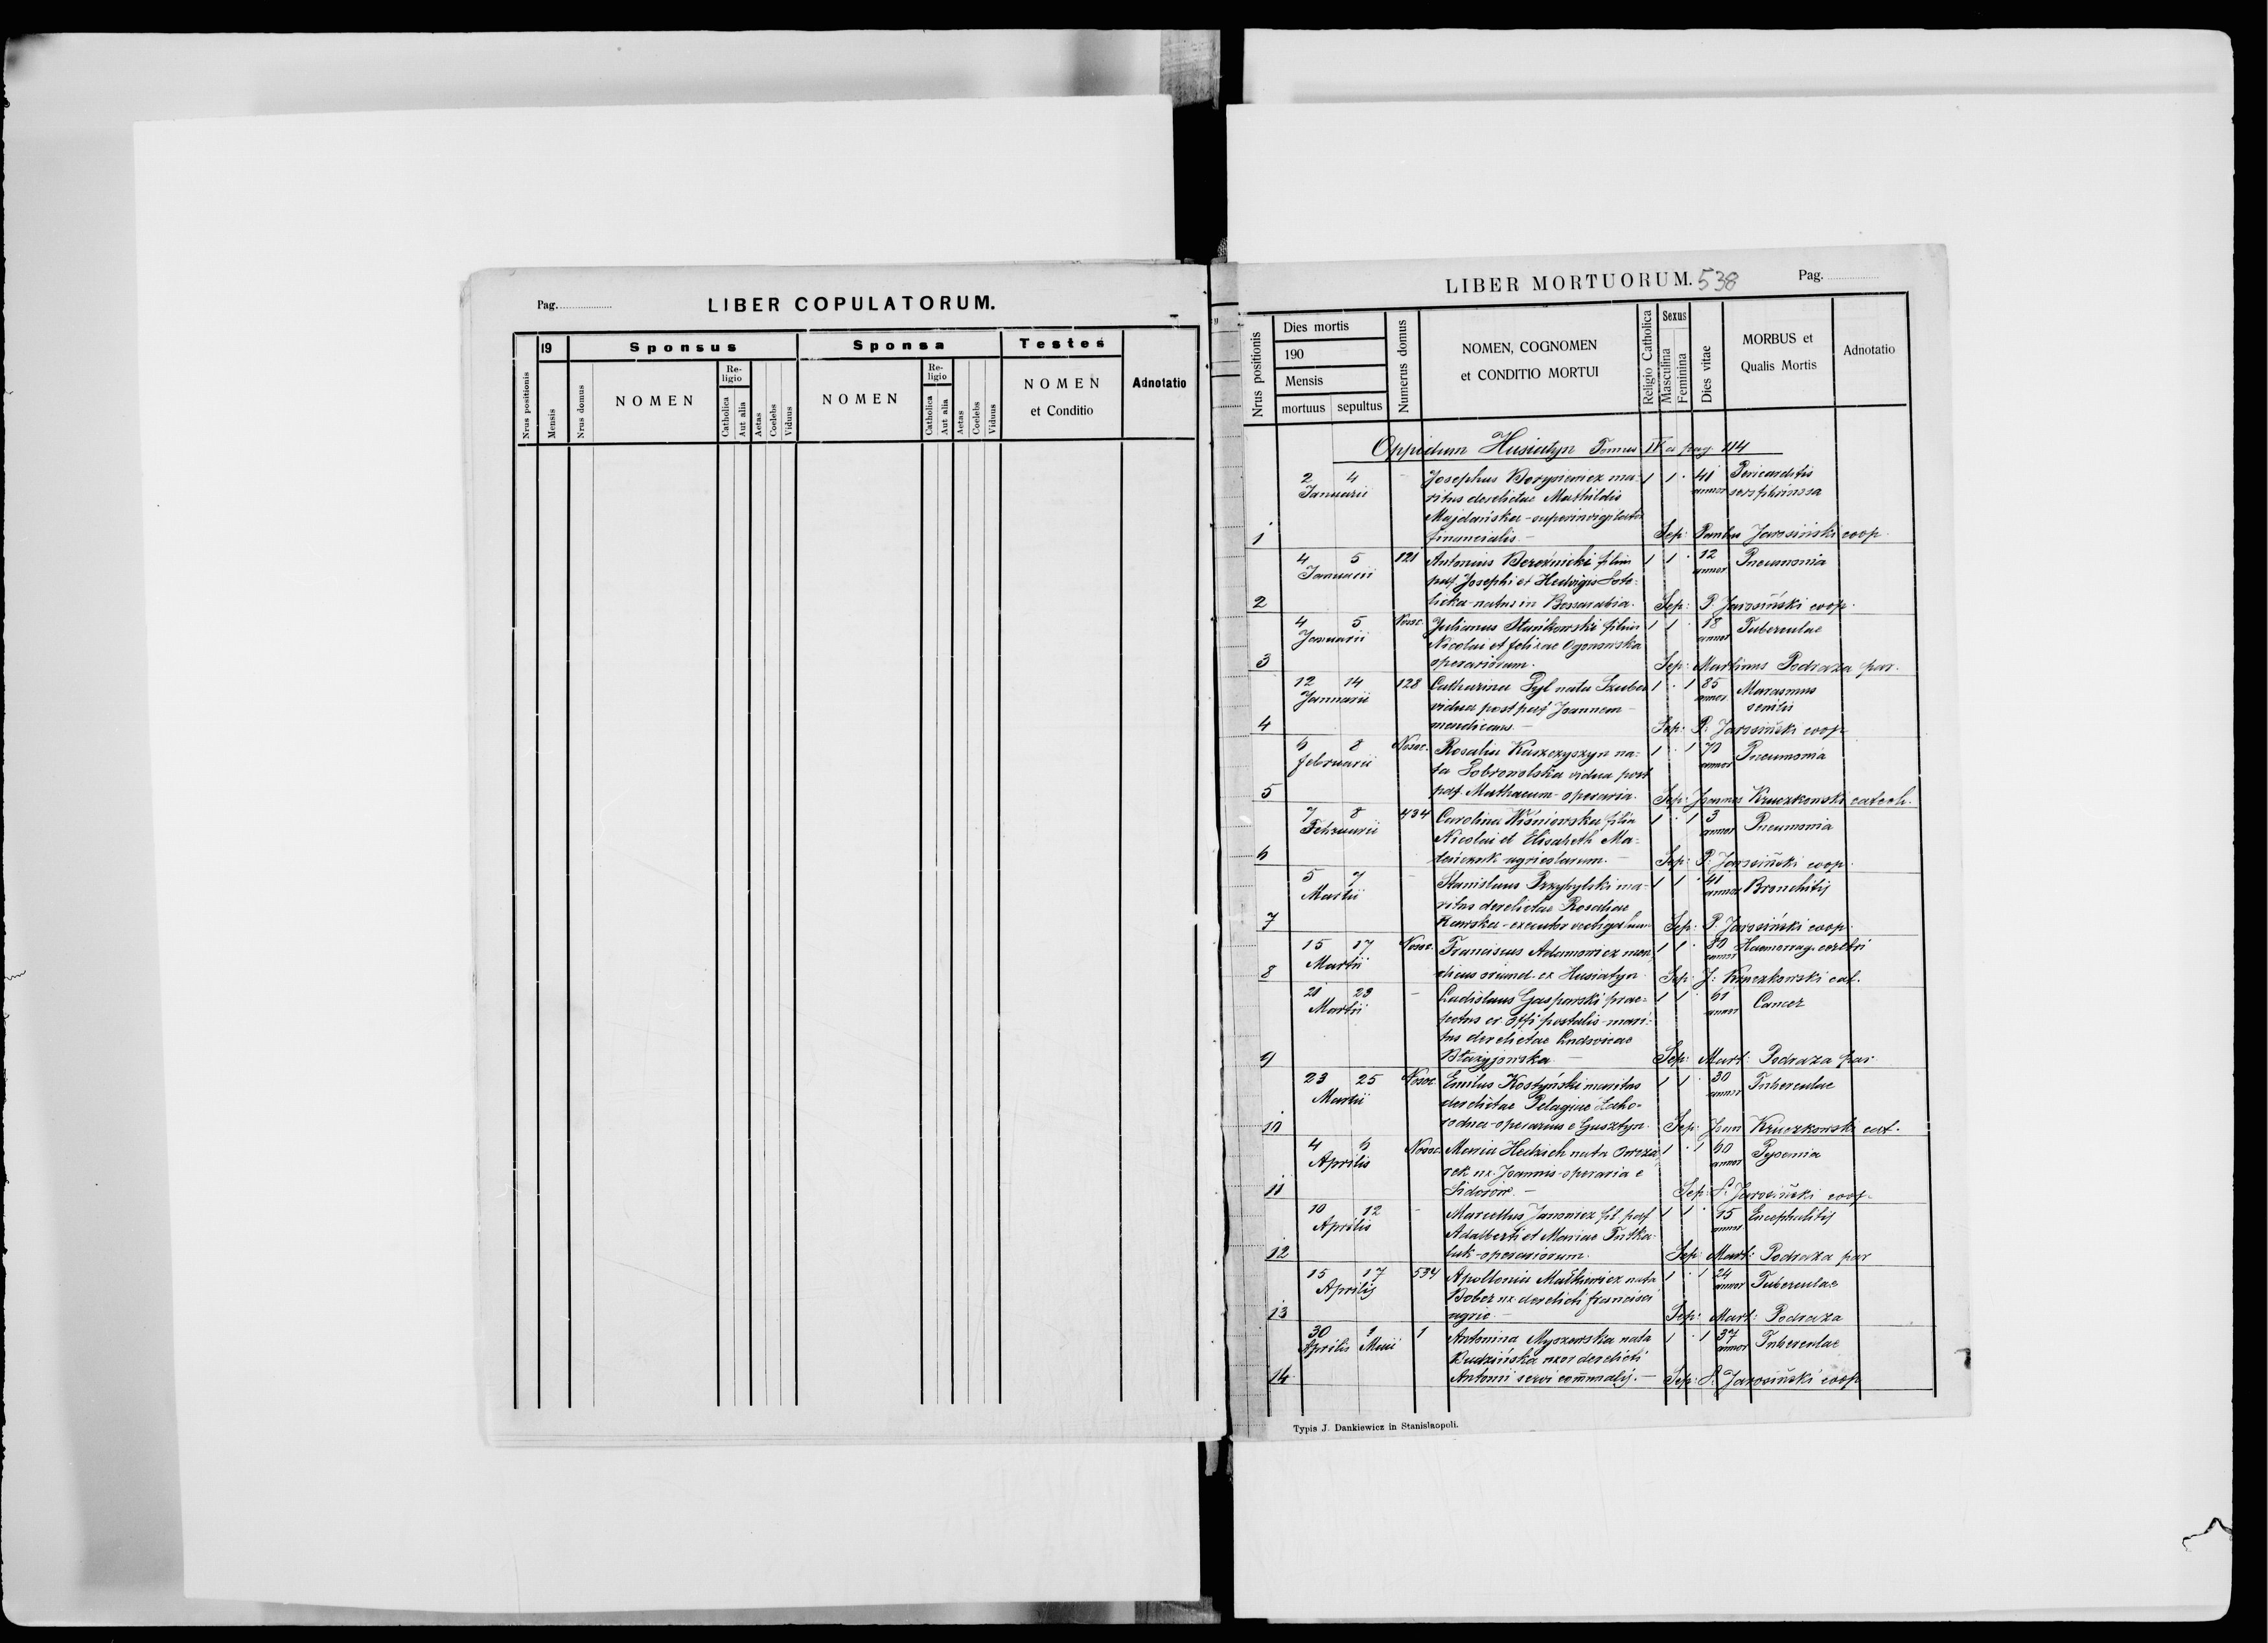 Pag.
LIBER COPULATORUM.
Nrus positionis
19
Mensis
Sponsus
Nrus domus
NOMEN
Religio
Catholica
Aut alia
Aetas
Coelebs
Viduus
Sponsa
NOMEN
Religio
Catholica
Aut alia
Aetas
Coelebs
Viduus
Testes
NOMEN
et Conditio
Adnotatio
LIBER MORTUORUM. 538
Pag.
Nrus positionis
Dies mortis
190
Mensis
mortuus sepultus
Numerus domus
NOMEN, COGNOMEN
et CONDITIO MORTUI
Religio Catholica
Sexus
Masculina
Feminina
Dies vitae
MORBUS et
Qualis Mortis
Adnotatio
Oppidum Husiatyn Tomus IV a pag. 114
2 4 - Josephus Borysiewicz ma- 1 1 · 41 Pericarditis
Januarii ritus derelictae Mathildis annor
Majdańska - superinvigilator
1 financialis. - Sep: Paulus Jarosiński coop.
4 5 121 Antonius Bereźnicki filius 1 1 · 12 Pneumonia
Januarii pdf. Josephi et Hedvigis annor
2 natus in Bessarabia. Sep: P. Jarosiński coop.
4 5 Nosoc. Julianus Stańkowski filius 1 1 · 18 Tuberculae
Januarii Nicolai et Felixae Ogonowska annor
3 operariorum. Sep: Martinus Podraza par.
12 14 128 Catharina Pyl nata Szuber 1 · 1 85 Marasmus
Januarii vidua post pdf Joannem - annor senilis
4 mendicans. - Sep: P. Jarosiński coop
6 8 Nosoc. Rosalia Kuszczyszyn na- 1 · 1 70 Pneumonia
Februarii ta Dobrowolska vidua post annor
5 pdf. Mathaeum - operaria. Sep: Joannes Kruczkowski catech.
7 8 434 Carolina Wiśniowska filia 1 · 1 3 Pneumonia
Februarii Nicolai et Elisabeth Ma- annor
6 agricolarum. - Sep: P. Jarosiński coop.
5 7 - Stanislaus Przybylski ma- 1 1 · 41 Bronchitis
Martii ritus derelictae Rosaliae annor
7 Rawska - executor vectigalium Sep: P. Jarosiński coop.
15 17 Nosoc. Franciscus Adamowicz men- 1 1 · 80 Haemorrag. cerebri
Martii dicus oriund. ex Husiatyn. annor
8 Sep: J: Kruczkowski cat.
21 23 - Ladislaus Gasparski prae- 1 1 · 61 Cancer
Martii fectus cr. offi postalis - mari- annor
tus derelictae Ludovicae
9 Błażyjowska - Sep: Mart: Podraza par.
23 25 Nosoc. Emilus Kostyński maritus 1 1 · 30 Tuberculae
Martii derelictae Pelagiae Łaho- annor
10 rodna - operarius e Gusztyn. Sep: Joan Kruczkowski cat.
4 6 Nosoc. Maria Heibrich nata 1 · 1 60 Pyoemia
Aprilis ux. Joannis - operaria e annor
11 Sidorow. - Sep: P. Jarosiński coop.
10 12 - Marcellus Janowicz fil. pdf 1 1 · 15 Encephalitis
Aprilis Adalberti et Mariae Tutka- annor
12 luk - operariorum. Sep: Mart: Podraza par
15 17 534 Apollonia Maćkiewicz nata 1 · 1 24 Tuberculae
Aprilis Bober ux. derelicti Francisci annor
13 agric - Sep: Mart: Podraza
30 1 1 Antonina Myszowska nata 1 · 1 37 Tuberculae
Aprilis Maii Budzińska uxor derelicti annor
14 Antonii servi commalis. - Sep: P. Jarosiński coop
Typis J. Dankiewicz in Stanislaopoli.